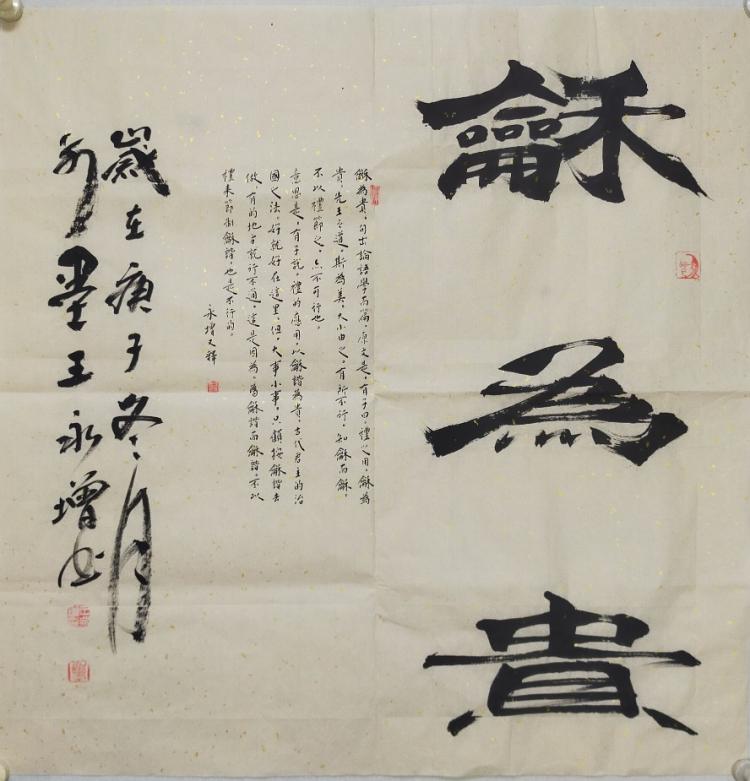 龢為貴
龢為貴，句出論語學而篇，原文是，有子曰，禮之用，龢為
貴，先王之道，斯為美，大小由之，有所不行，知龢而龢，
不以禮節之，亦不可行也。
意思是，有子說，禮的應用，以龢諧為貴，古代君主的治
國之法，好就好在這里，但，大事小事，只顧按龢諧去
做，有的地方就行不通，這是因為，為龢諧而龢諧，不以
禮來節制龢諧，也是不行的。
永增又釋
歲在庚子冬月
墨王永增書